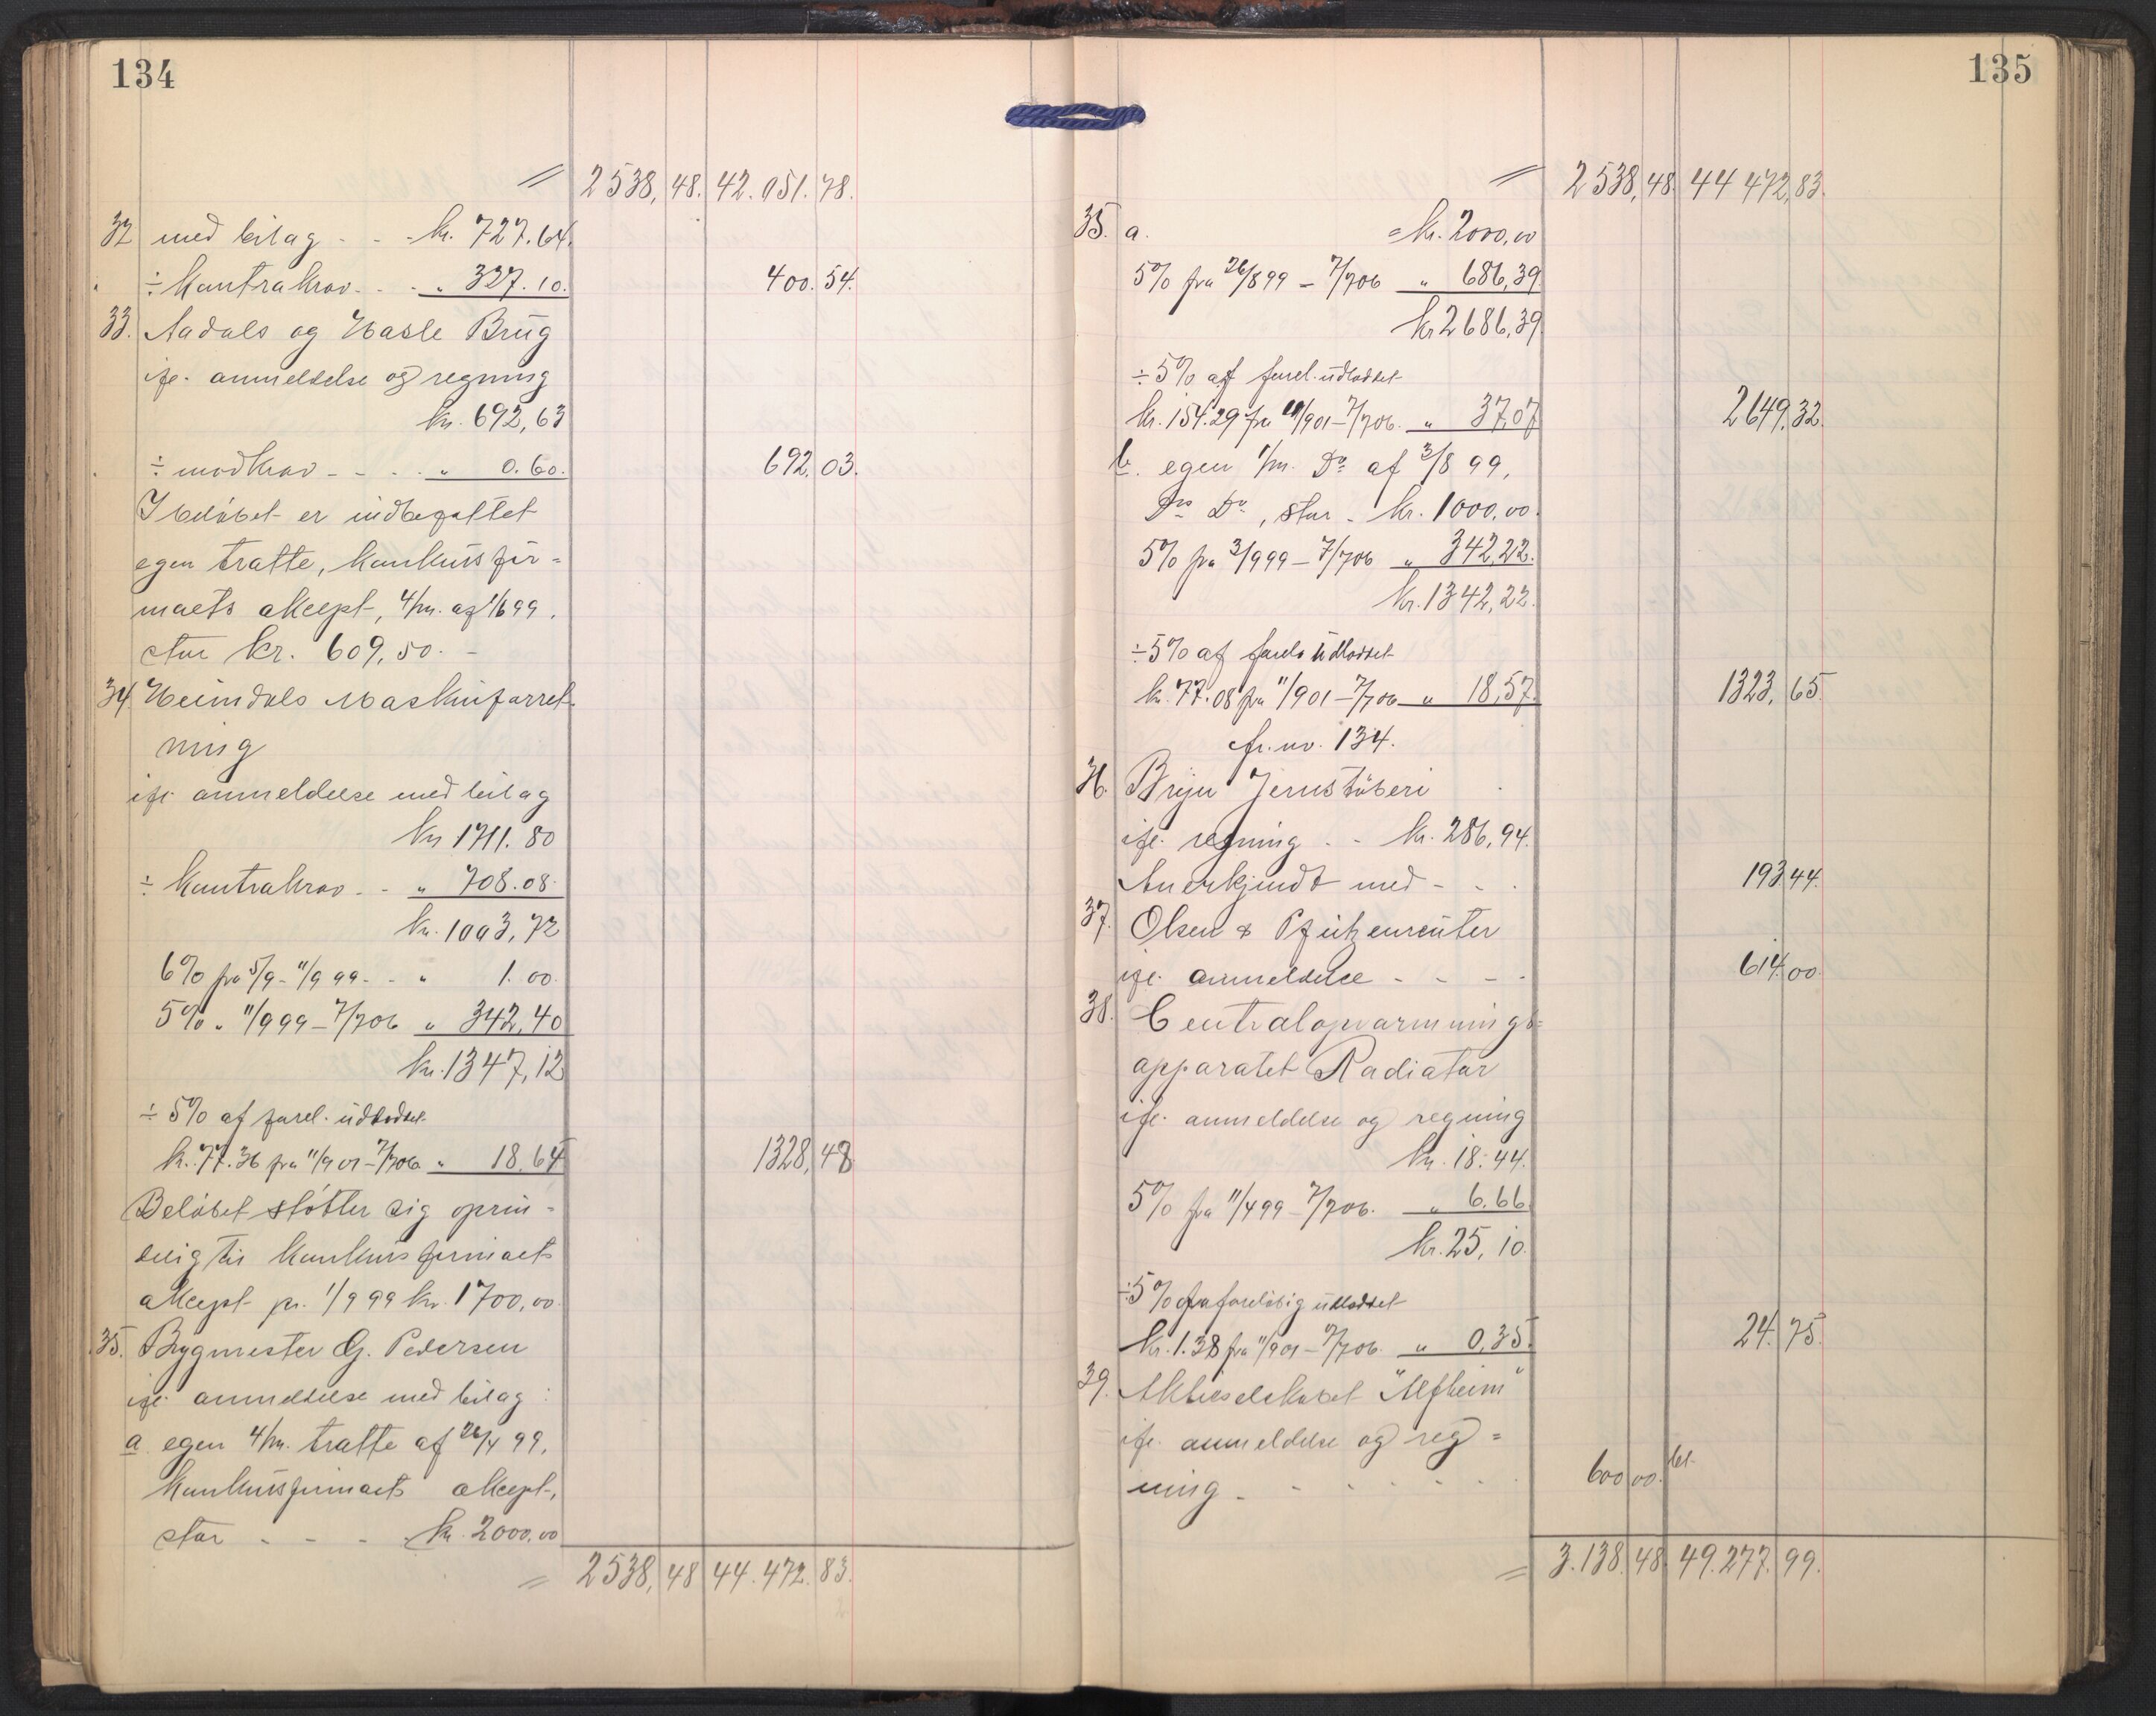 134
= 2538,48. 42.051.78.
32 med bilag - - - kr. 727.64.
÷ Kontrakrav - - „ 327.10. 400.54.
33. Aadals og Hasle Brug
ifl. anmeldelse og regning
kr. 692,63
÷ modkrav - - - - „ 0.60. 692.03.
I beløbet er indbefattet
egen tratte, konkursfir=
maets akcept, 4/m. af 1/6 99.
stor kr. 609,50. -
34. Heimdals Maskinforret-
ning
ifl. anmeldelse med bilag
kr. 1711.80
÷ Kontrakrav - - „ 708.08.
kr. 1003,72
6% fra 5/9 - 11/9 99 - - „ 1.00.
5% „ 11/9 99 - 7/7 06 „ 342,40
kr. 1347,12
÷ 5% af forel. udloddet
kr. 77.36 fra 11/9 01 - 7/7 06 „ 18.64 1328,48
Beløbet støtter sig oprin=
delig til konkursfirmaets
akcept pr. 1/9 99 kr. 1700,00.
35. Bygmester G. Pedersen
ifl. anmeldelse med bilag:
a. egen 4/m. tratte af 26/4 99,
konkursfirmaets akcept,
stor - - - kr. 2000,00
= 2538,48 44.472.83.
135
= 2538,48. 44 472,83.
35. a. = kr. 2000,00
5% fra 26/8 99 - 7/7 06 „ 686,39
kr. 2686,39
÷ 5% af forel. udloddet
kr. 154.29 fra 11/9 01 - 7/7 06. „ 37,07 2649,32.
b. egen 1/m. Do af 3/8 99,
Ds Do, stor - kr. 1000,00.
5% fra 3/9 99 - 7/7 06 „ 342,22.
kr. 1342,22.
÷ 5% af forelø udloddet
kr. 77.08 fra 11/9 01 - 7/7 06 „ 18,57. 1323,65.
cfr. no. 134.
36. Brejn Jernstøberi
ifl. regning - - kr. 286,94.
Anerkjendt med - - . 193.44.
37. Olsen & Pfützenreuter
ifl. anmeldelse - - - - 614.00.
38. Centralopvarmnings=
apparatet Radiator
ifl. anmeldelse og regning
kr. 18.44.
5% fra 11/4 99 - 7/7 06. „ 6.66.
kr. 25,10.
÷ 5% fra foreløbig udloddet
kr. 1.38 fra 11/9 01 - 7/7 06. „ 0,35. 24.75.
39. Aktieselskabet "Alfheim"
ifl. anmeldelse og reg=
ning - - - - - - 600 00. bet.
= 3.138.48 49.277.99.